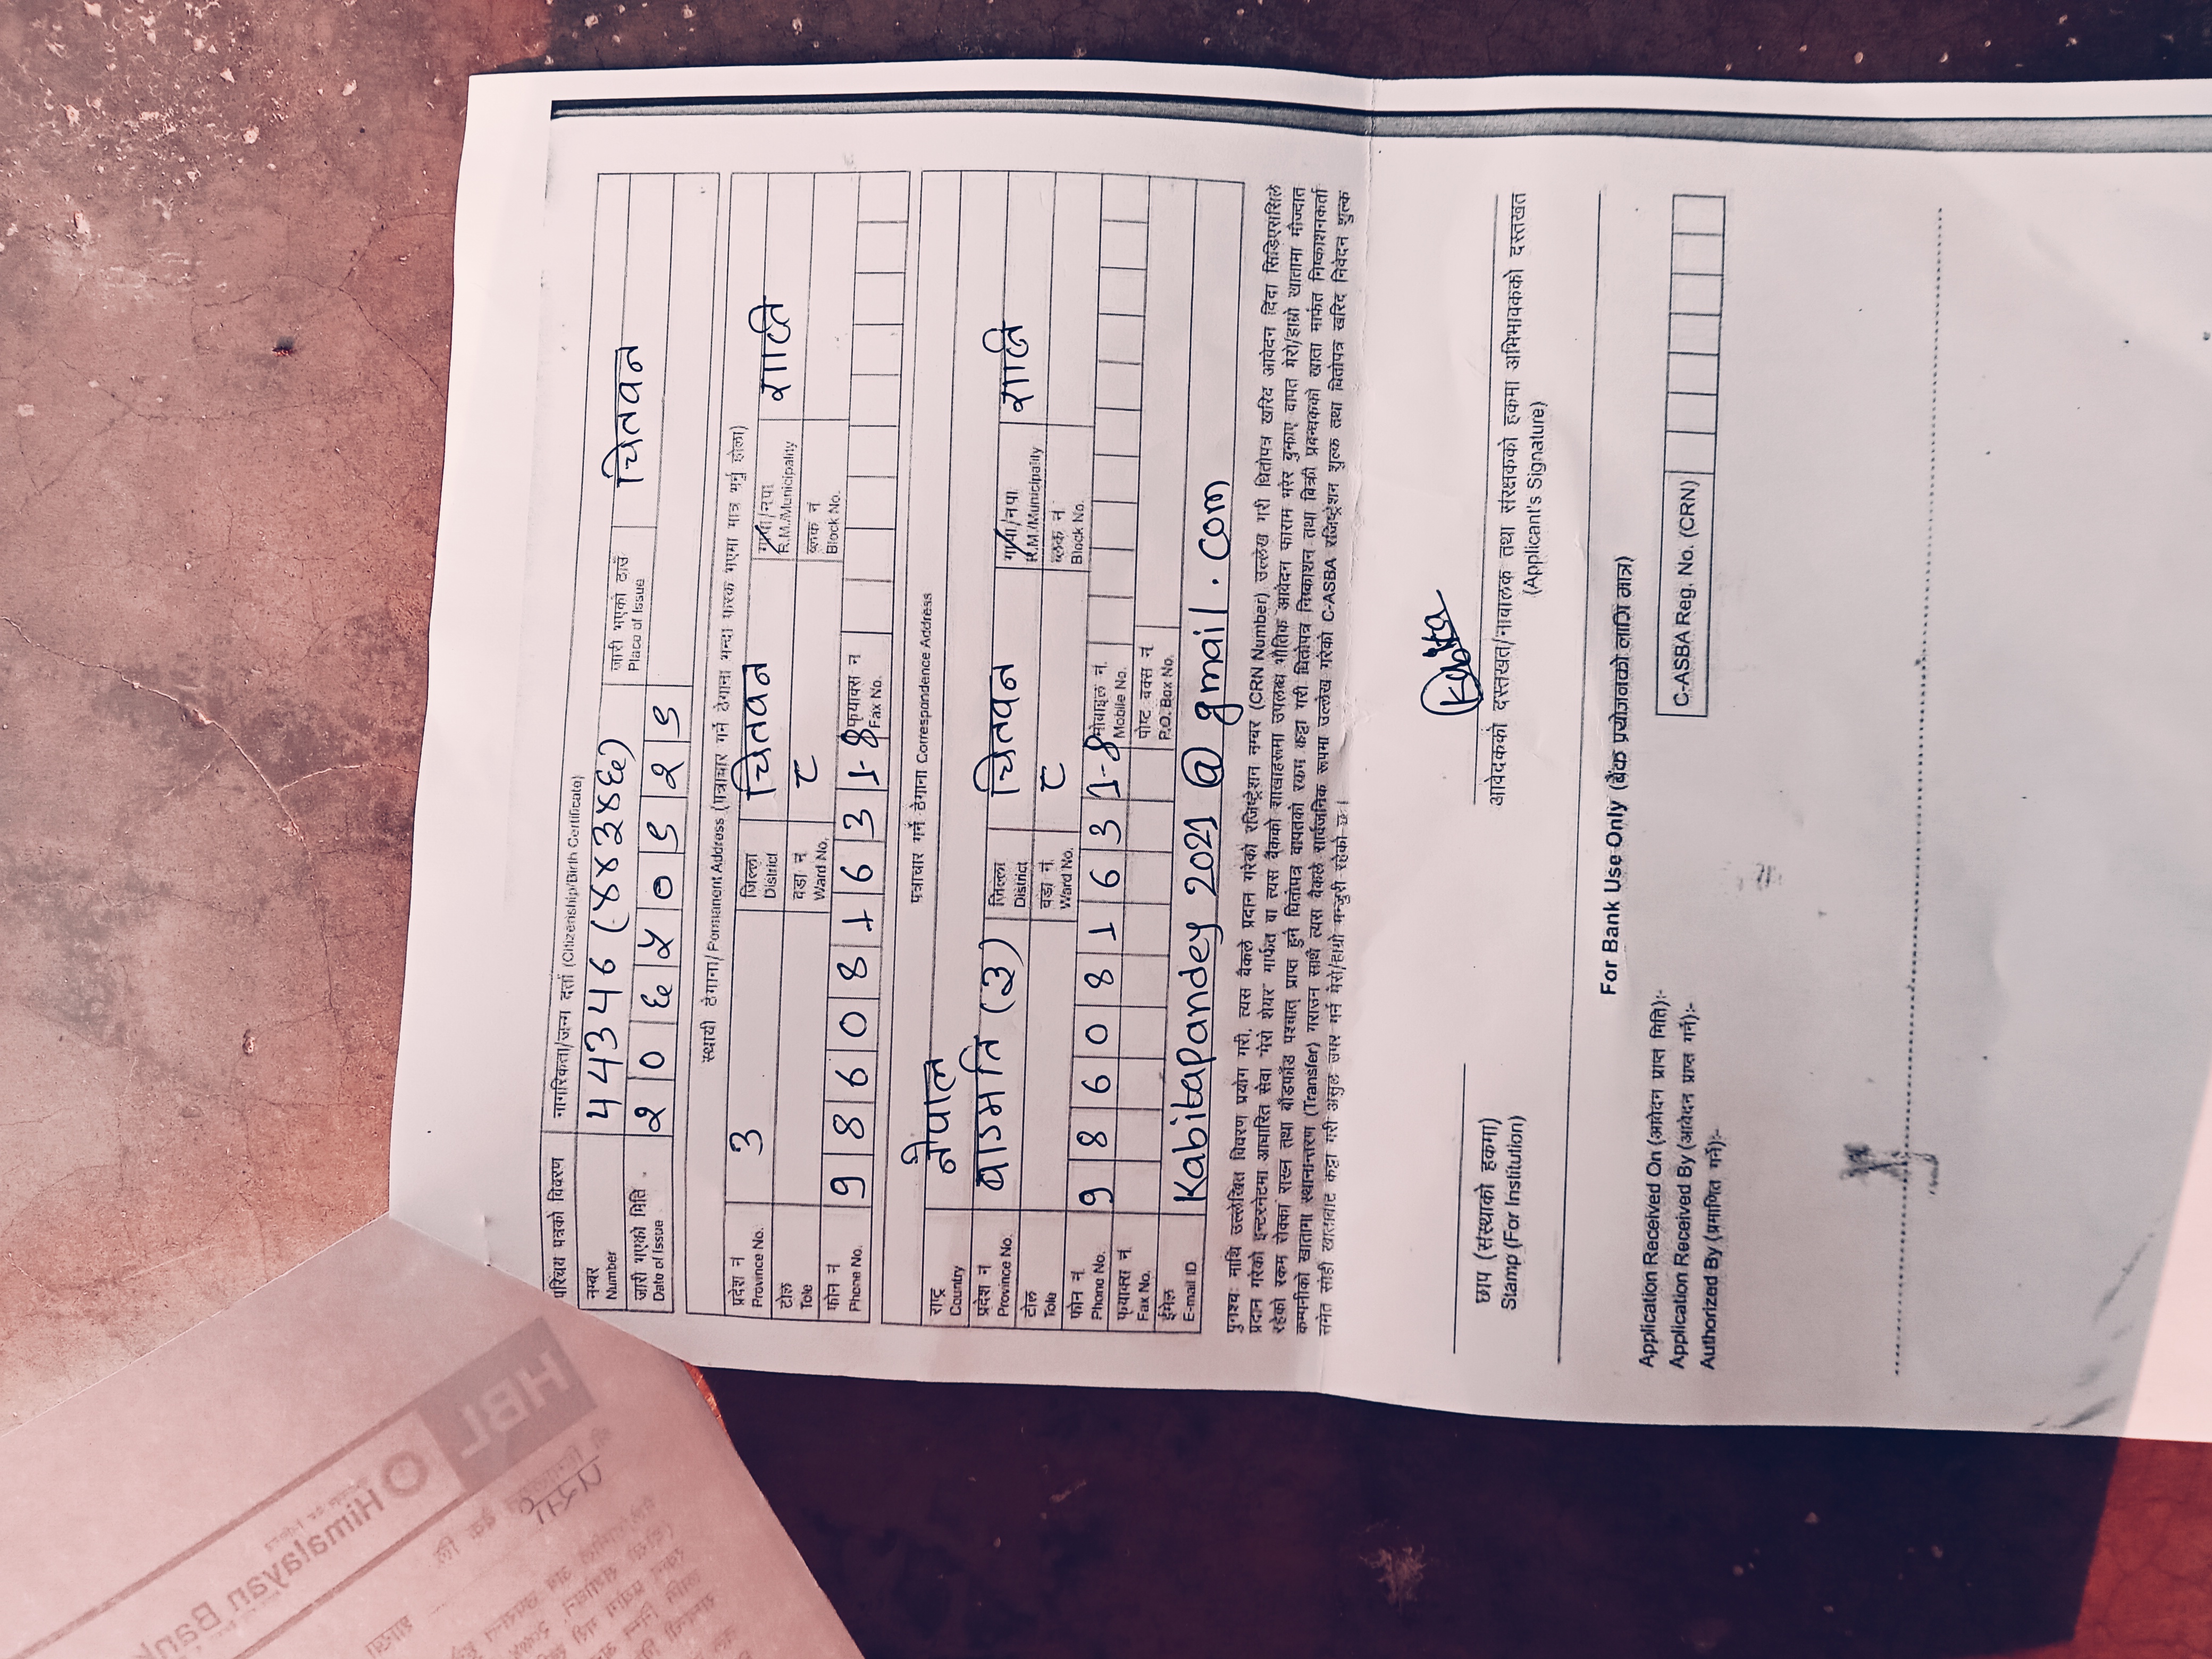 HBL Himalayan Bank
परिचय पत्रको विवरण नागरिकता/जन्म दर्ता (Citizenship/Birth Certificate)
नम्बर Number 44346 (४४३४६) जारी भएको ठाउँ Place of Issue चितवन
जारी भएको मिति Date of Issue २०६५०९२९
स्थायी ठेगाना/Permanent Address (पत्राचार गर्ने ठेगाना भन्दा फरक भएमा मात्र भर्नु होला)
प्रदेश नं Province No. 3 जिल्ला District चितवन गापा/नपा R.M./Municipality राप्ती
टोल Tole वडा नं Ward No. ८ ब्लक नं Block No.
फोन नं Phone No. 986081631-8 फ्याक्स नं Fax No.
पत्राचार गर्ने ठेगाना Correspondence Address
राष्ट्र Country नेपाल
प्रदेश नं Province No. बाग्मति (३) जिल्ला District चितवन गापा/नपा R.M./Municipality राप्ती
टोल Tole वडा नं. Ward No. ८ ब्लक नं Block No.
फोन नं. Phone No. 986081631-8 मोबाइल नं. Mobile No.
फ्याक्स नं. Fax No. पोष्ट वक्स नं. P.O. Box No.
ईमेल E-mail ID Kabitapandey 2021 @ gmail . com
पुनश्चः माथि उल्लेखित विवरण प्रयोग गरी, त्यस बैंकले प्रदान गरेको रजिष्ट्रेशन नम्बर (CRN Number) उल्लेख गरी धितोपत्र खरिद आवेदन दिंदा सिडिएससिले
प्रदान गरेको इन्टरनेटमा आधारित सेवा "मेरो शेयर" मार्फत वा त्यस बैंकको शाखाहरूमा उपलब्ध भौतिक आवेदन फाराम भरेर बुझाए वापत मेरो/हाम्रो खातामा मौज्दात
रहेको रकम रोक्का राख्न तथा बाँडफाँड पश्चात् प्राप्त हुने धितोपत्र वापतको रकम कट्टा गरी धितोपत्र निष्काशन तथा बिक्री प्रबन्धकको खाता मार्फत निष्काशनकर्ता
कम्पनीको खातामा स्थानान्तरण (Transfer) गराउन साथै त्यस बैंकले सार्वजनिक रूपमा उल्लेख गरेको C-ASBA रजिष्ट्रेशन शुल्क तथा धितोपत्र खरिद निवेदन शुल्क
समेत सोही खाताबाट कट्टा गरी असुल उपर गर्न मेरो/हाम्रो मन्जुरी रहेको छ।
Kabita
छाप (संस्थाको हकमा) आवेदकको दस्तखत/नाबालक तथा संरक्षकको हकमा अभिभावकको दस्तखत
Stamp (For Institution) (Applicant's Signature)
For Bank Use Only (बैंक प्रयोजनको लागि मात्र)
Application Received On (आवेदन प्राप्त मिति):-
Application Received By (आवेदन प्राप्त गर्ने):- C-ASBA Reg. No. (CRN)
Authorized By (प्रमाणित गर्ने):-